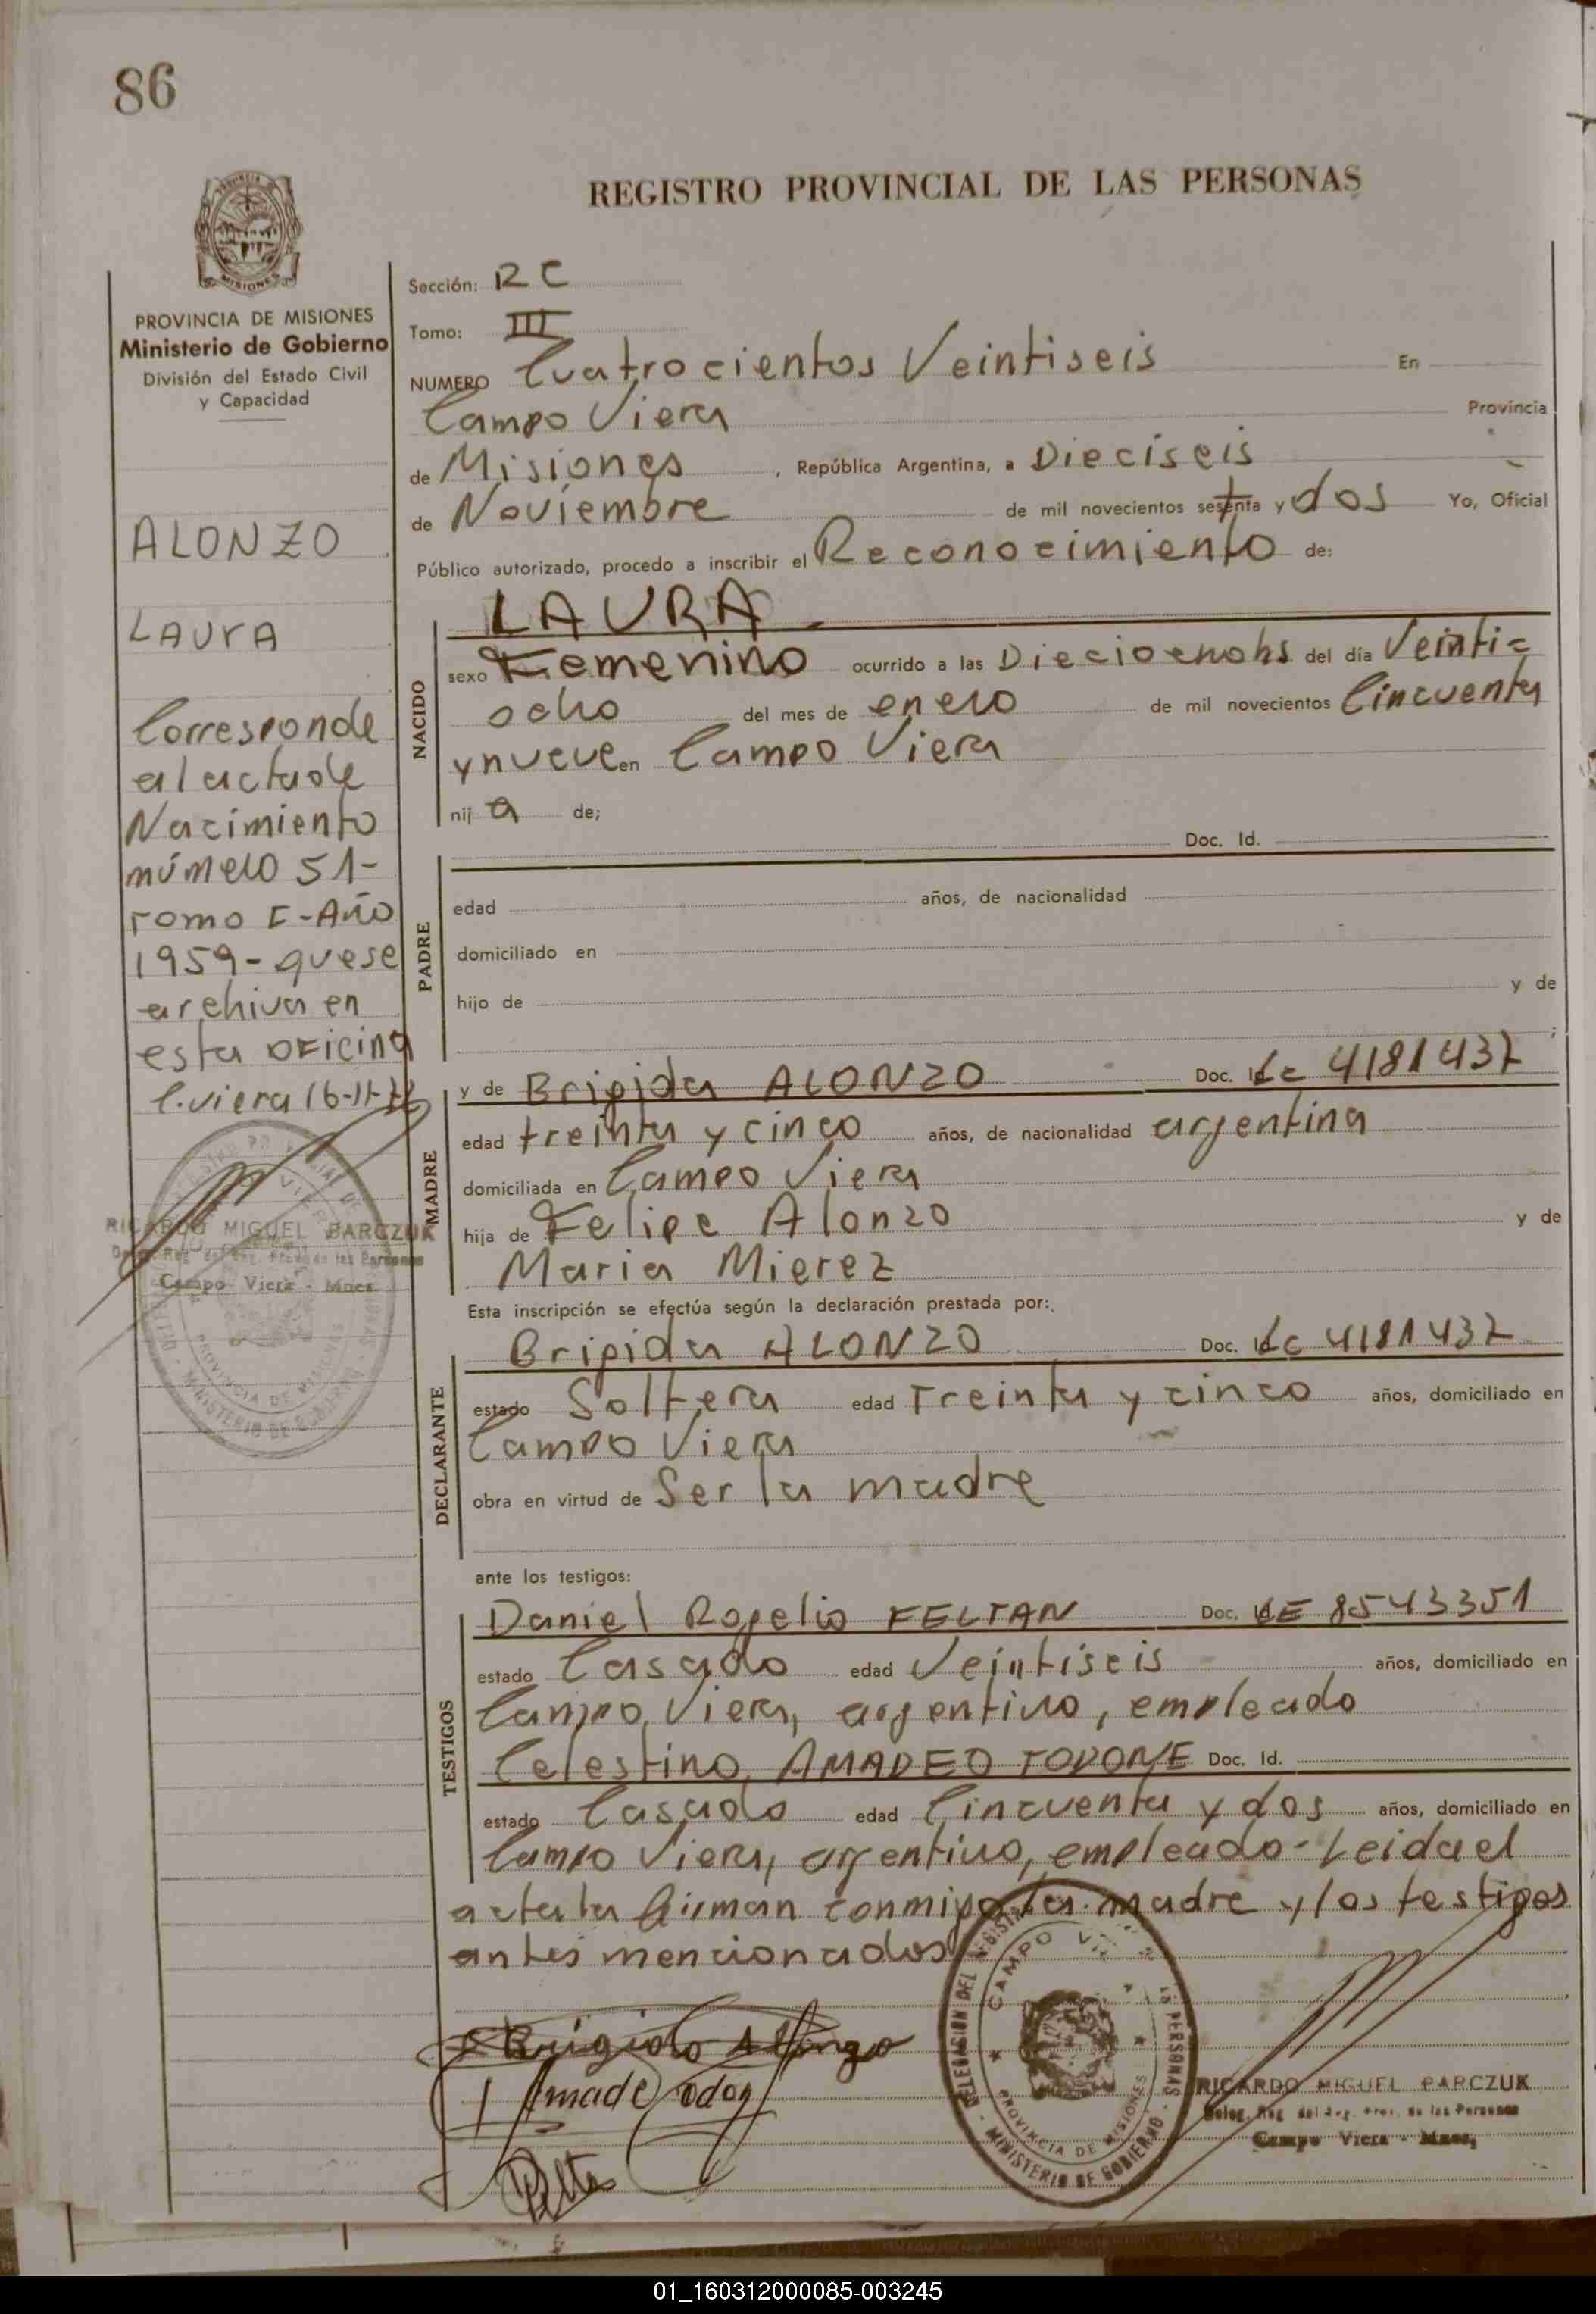 86
REGISTRO PROVINCIAL DE LAS PERSONAS
MISIONES
PROVINCIA DE MISIONES
Ministerio de Gobierno
División del Estado Civil
y Capacidad
ALONZO
LAURA
Corresponde
al acta de
Nacimiento
número 51-
Tomo I-Año
1959- que se
archiva en
esta oficina
C. Viera 16-11-72
RICARDO MIGUEL BARCZUK
Campo Viera - Mnes.
Sección: RC
Tomo: III
NUMERO Cuatrocientos Veintiseis En
Campo Viera Provincia
de Misiones, República Argentina, a Dieciseis
de Noviembre de mil novecientos setenta y dos Yo, Oficial
Público autorizado, procedo a inscribir el Reconocimiento de:
LAURA
NACIDO
sexo Femenino ocurrido a las Dieciocho hs del día Veinti=
ocho del mes de enero de mil novecientos Cincuenta
y nueve en Campo Viera
hij a de;
Doc. Id.
PADRE
edad años, de nacionalidad
domiciliado en
hijo de y de
;
MADRE
y de Brigida ALONZO Doc. Lc 4181437
edad treinta y cinco años, de nacionalidad argentina
domiciliada en Campo Viera
hija de Felipe Alonzo y de
Maria Mierez
Esta inscripción se efectúa según la declaración prestada por:
DECLARANTE
Brigida ALONZO Doc. Lc 4181437
estado Soltera edad Treinta y cinco años, domiciliado en
Campo Viera
obra en virtud de Ser la madre
ante los testigos:
TESTIGOS
Daniel Rogelio FELTAN Doc. LE 8543351
estado Casado edad Veintiseis años, domiciliado en
Campo Viera, argentino, empleado
Celestino AMADEO TODONE Doc. Id.
estado Casado edad Cincuenta y dos años, domiciliado en
Campo Viera, argentino, empleado-Leida el
acta la firman conmigo la madre y los testigos
antes mencionados
Brigida Alonzo
CAMPO
PROVINCIA DE MISIONES
MINISTERIO DE GOBIERNO
RICARDO MIGUEL BARCZUK
Deleg. Reg. del Reg. Prov. de las Personas
Campo Viera - Mnes.
01_160312000085-003245